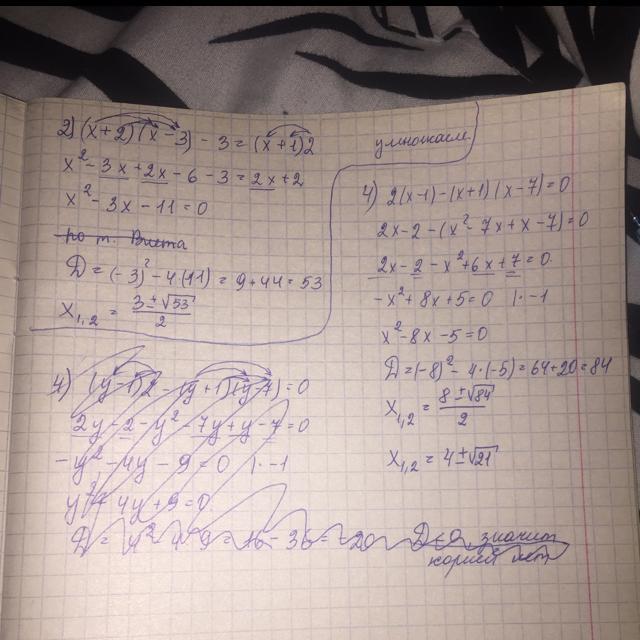 2) (x+2)(x-3) - 3 = (x+1)2
x² - 3x + 2x - 6 - 3 = 2x + 2
x² - 3x - 11 = 0
по т. Виета
D = (-3)² - 4·(11) = 9 + 44 = 53
x₁,₂ = (3 ± √53)/2
умножаем
4) 2(x-1) - (x+1)(x-7) = 0
2x - 2 - (x² - 7x + x - 7) = 0
2x - 2 - x² + 6x + 7 = 0
-x² + 8x + 5 = 0 |·-1
x² - 8x - 5 = 0
D = (-8)² - 4·(-5) = 64 + 20 = 84
x₁,₂ = (8 ± √84)/2
x₁,₂ = 4 ± √21
4) (y-1)2 - (y+1)(y-7) = 0
2y - 2 - y² - 7y + y - 7 = 0
-y² - 4y - 9 = 0 |·-1
y² + 4y + 9 = 0
D = 4² - 4·9 = 16 - 36 = -20 D<0, значит
корней нет